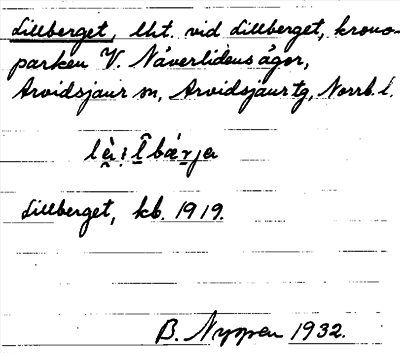 Lillberget, lht. vid Lillberget, krono-
parken V. Näverlidens ägor,
Arvidsjaur sn, Arvidsjaur tg, Norrb. l.
Lillberget, kb. 1919.
B. Nyppen 1932.